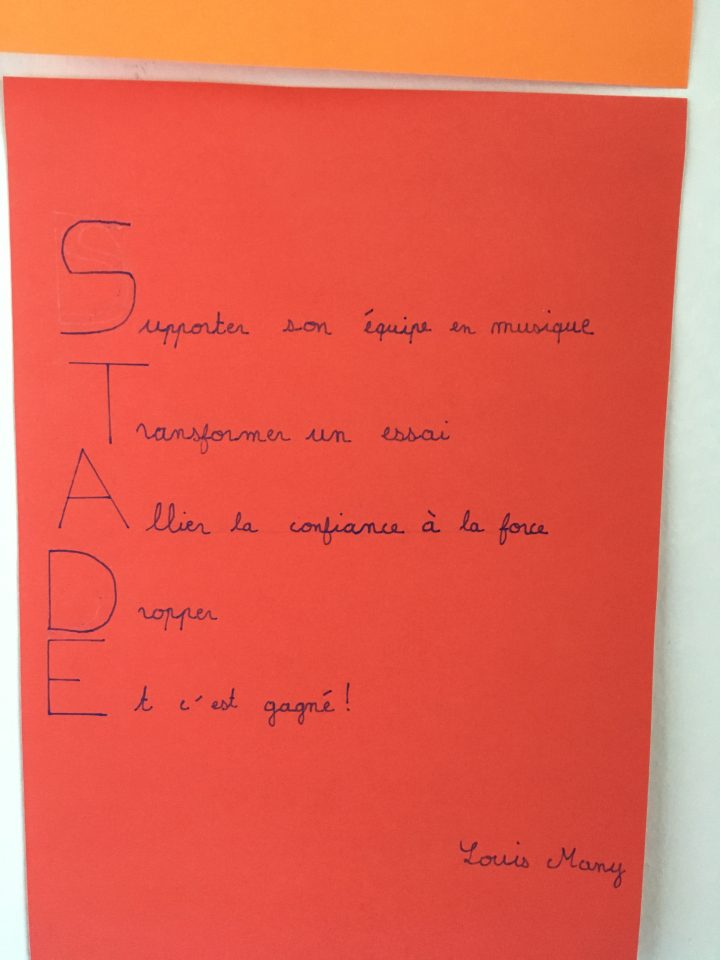 Supporter son équipe en musique
Transformer un essai
Allier la confiance à la force
Dropper
Et c'est gagné!
Louis Many